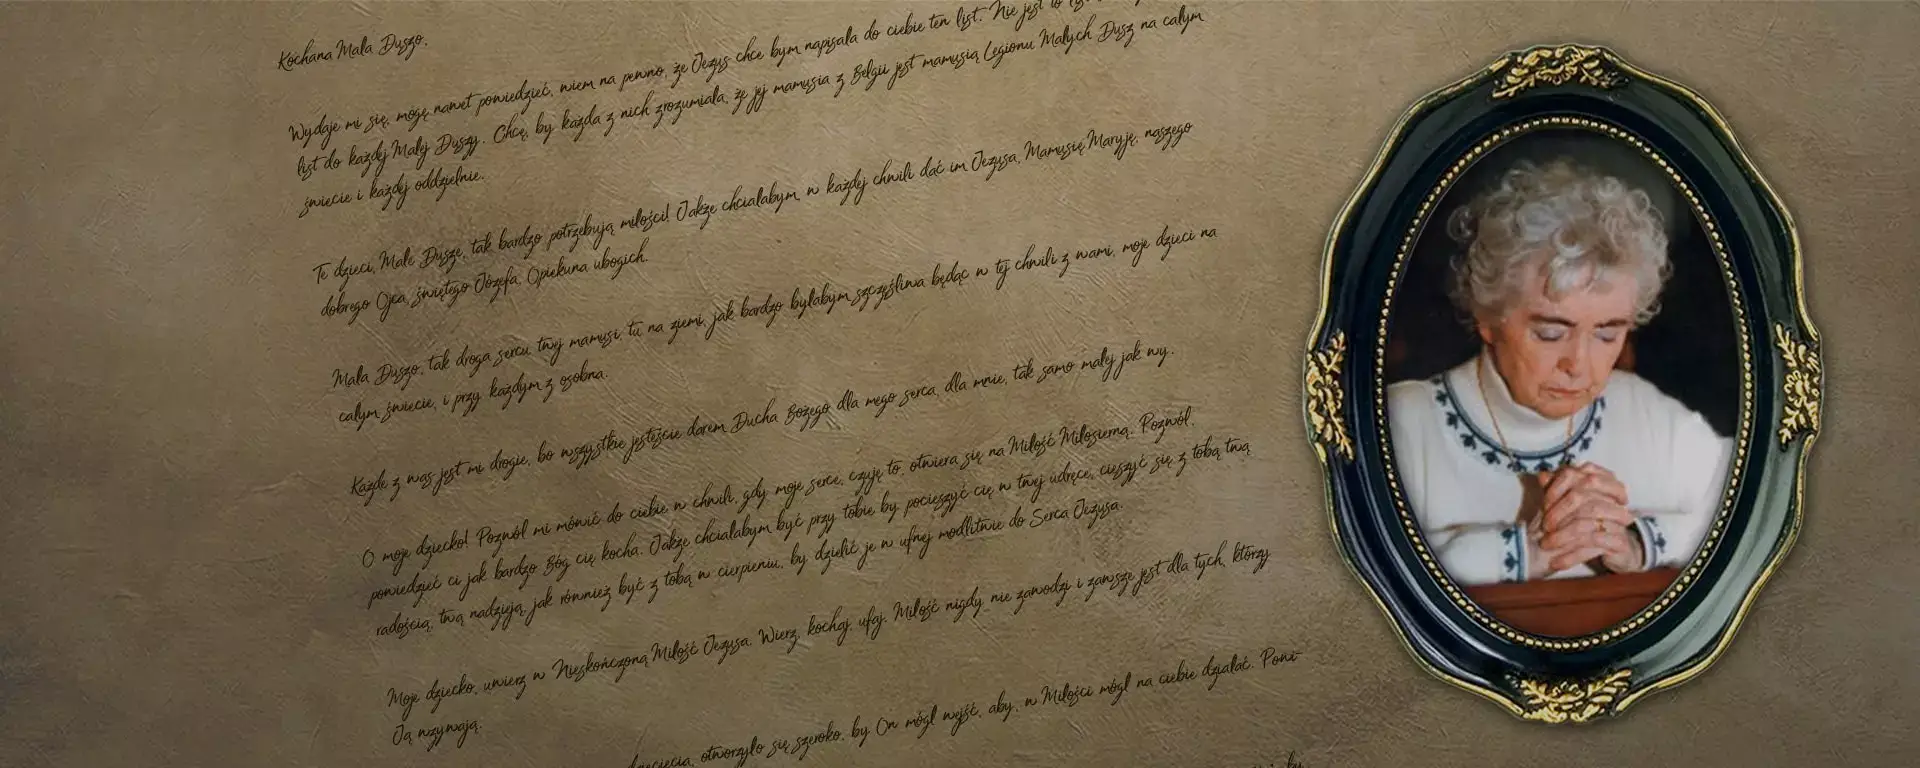 Kochana Mała Duszo,
Wydaje mi się, mogę nawet powiedzieć, wiem na pewno, że Jezus chce bym napisała do ciebie ten list. Nie jest to
list do każdej Małej Duszy. Chcę, by każda z nich zrozumiała, że jej mamusia z Belgii jest mamusią Legionu Małych Dusz na całym
świecie i każdej oddzielnie.
Te dzieci, Małe Dusze, tak bardzo potrzebują miłości! Jakże chciałabym, w każdej chwili dać im Jezusa, Mamusię Maryję, naszego
dobrego Ojca, świętego Józefa, Opiekuna ubogich.
Mała Duszo, tak droga sercu twej mamusi tu na ziemi, jak bardzo byłabym szczęśliwa będąc w tej chwili z wami, moje dzieci na
całym świecie, i przy każdym z osobna.
Każde z was jest mi drogie, bo wszystkie jesteście darem Ducha Bożego dla mego serca, dla mnie, tak samo małej jak wy.
O moje dziecko! Pozwól mi mówić do ciebie w chwili, gdy moje serce, czuję to, otwiera się na Miłość Miłosierną. Pozwól,
powiedzieć ci jak bardzo Bóg cię kocha. Jakże chciałabym być przy tobie by pocieszyć cię w twej udręce, cieszyć się z tobą twą
radością, twą nadzieją, jak również być z tobą w cierpieniu, by dzielić je w ufnej modlitwie do Serca Jezusa.
Moje dziecko, uwierz w Nieskończoną Miłość Jezusa. Wierz, kochaj, ufaj. Miłość nigdy nie zawodzi i zawsze jest dla tych, którzy
Ją wzywają.
dziecięcia, otworzyło się szeroko, by On mógł wejść, aby, w Miłości mógł na ciebie działać. Powi-
by